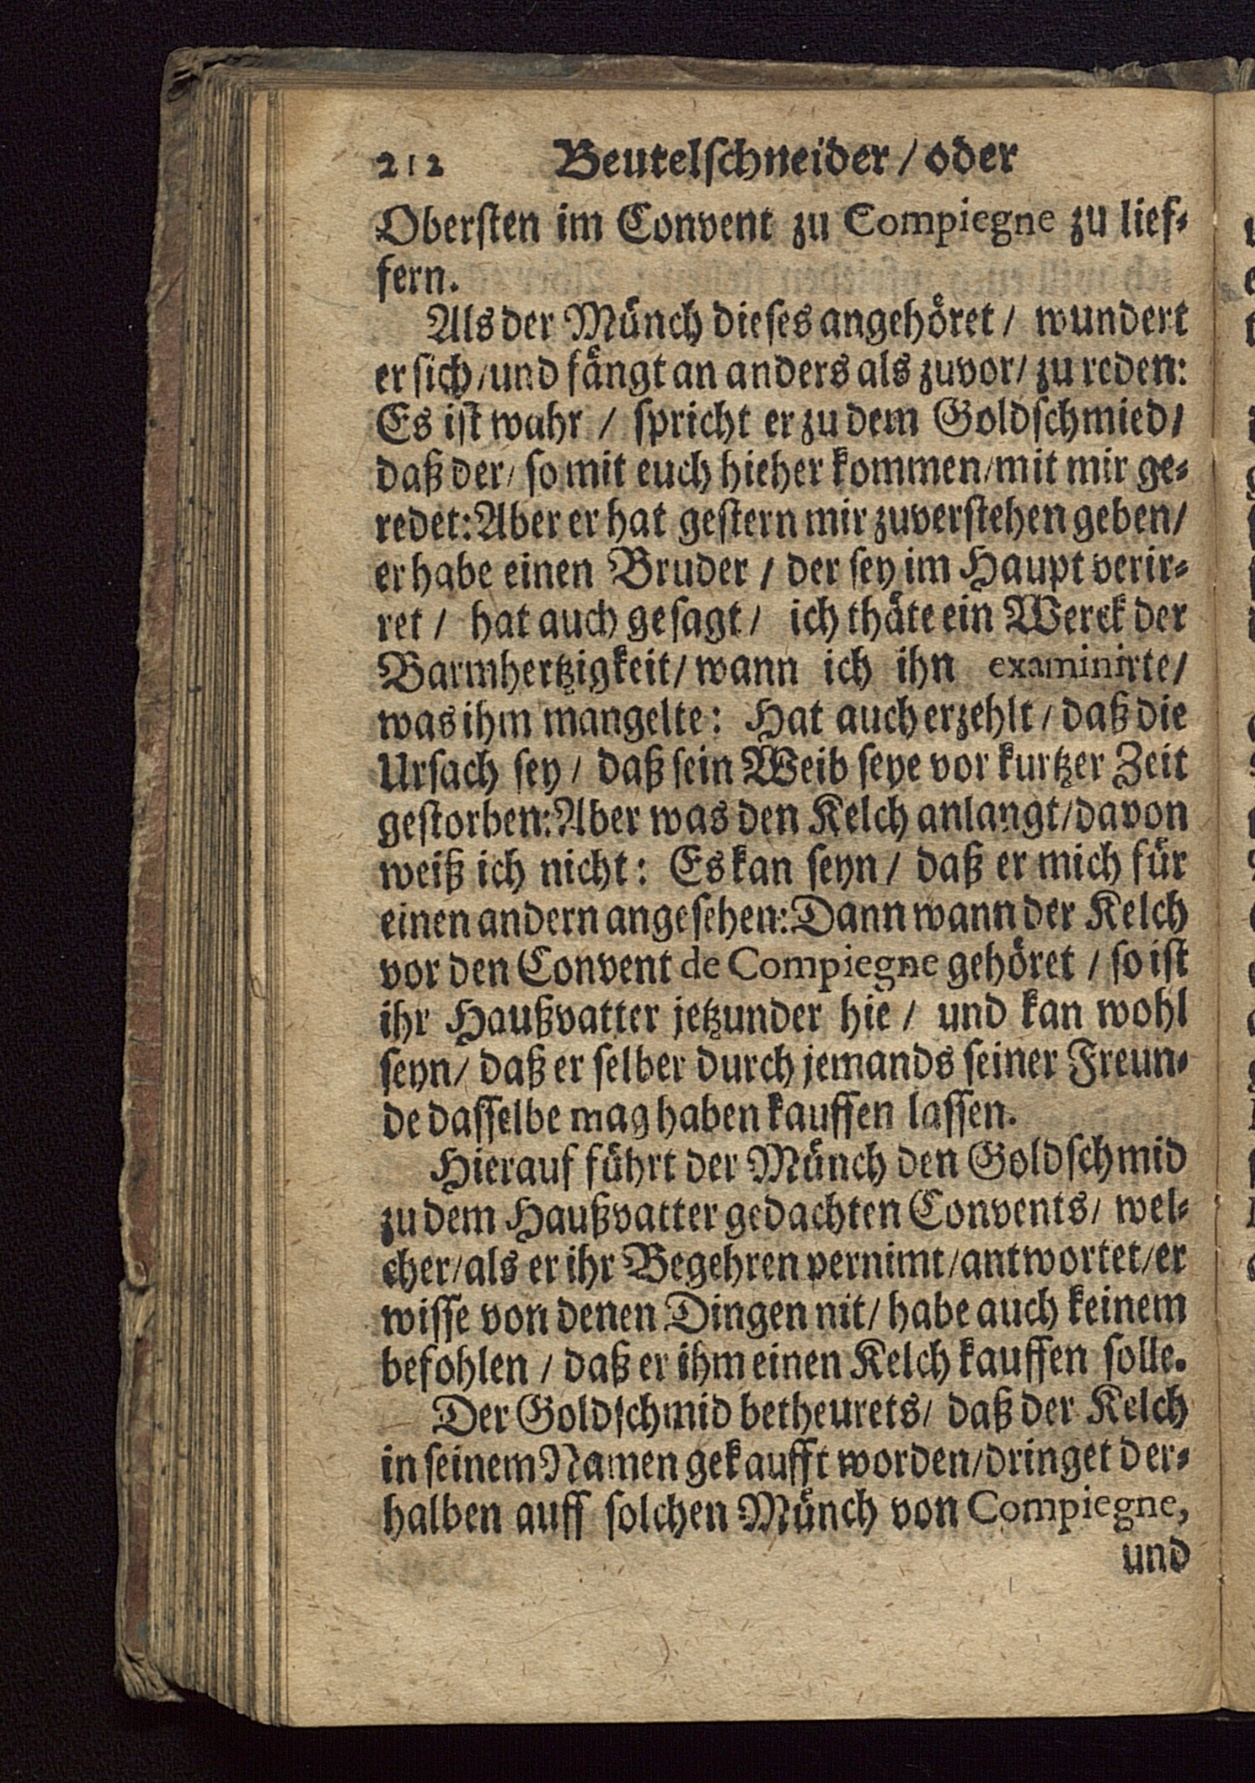 212 Beutelschneider / oder
Obersten im Convent zu Compiegne zu lief-
fern.
Als der Münch dieses angehöret / wundert
er sich / und fängt an anders als zuvor / zu reden:
Es ist wahr / spricht er zu dem Goldschmied /
daß der / so mit euch hieher kommen / mit mir ge-
redet: Aber er hat gestern mir zuverstehen geben /
er habe einen Bruder / der sey im Haupt verir-
ret / hat auch gesagt / ich thäte ein Werck der
Barmhertzigkeit / wann ich ihn examinirte /
was ihm mangelte: Hat auch erzehlt / daß die
Ursach sey / daß sein Weib seye vor kurtzer Zeit
gestorben: Aber was den Kelch anlangt / davon
weiß ich nicht: Es kan seyn / daß er mich für
einen andern angesehen: Dann wann der Kelch
vor den Convent de Compiegne gehöret / so ist
ihr Haußvatter jetzunder hie / und kan wohl
seyn / daß er selber durch jemands seiner Freun-
de dasselbe mag haben kauffen lassen.
Hierauf führt der Münch den Goldschmid
zu dem Haußvatter gedachten Convents / wel-
cher / als er ihr Begehren vernimt / antwortet / er
wisse von denen Dingen nit / habe auch keinem
befohlen / daß er ihm einen Kelch kauffen solle.
Der Goldschmid betheurets / daß der Kelch
in seinem Namen gekaufft worden / dringet der-
halben auff solchen Münch von Compiegne,
und